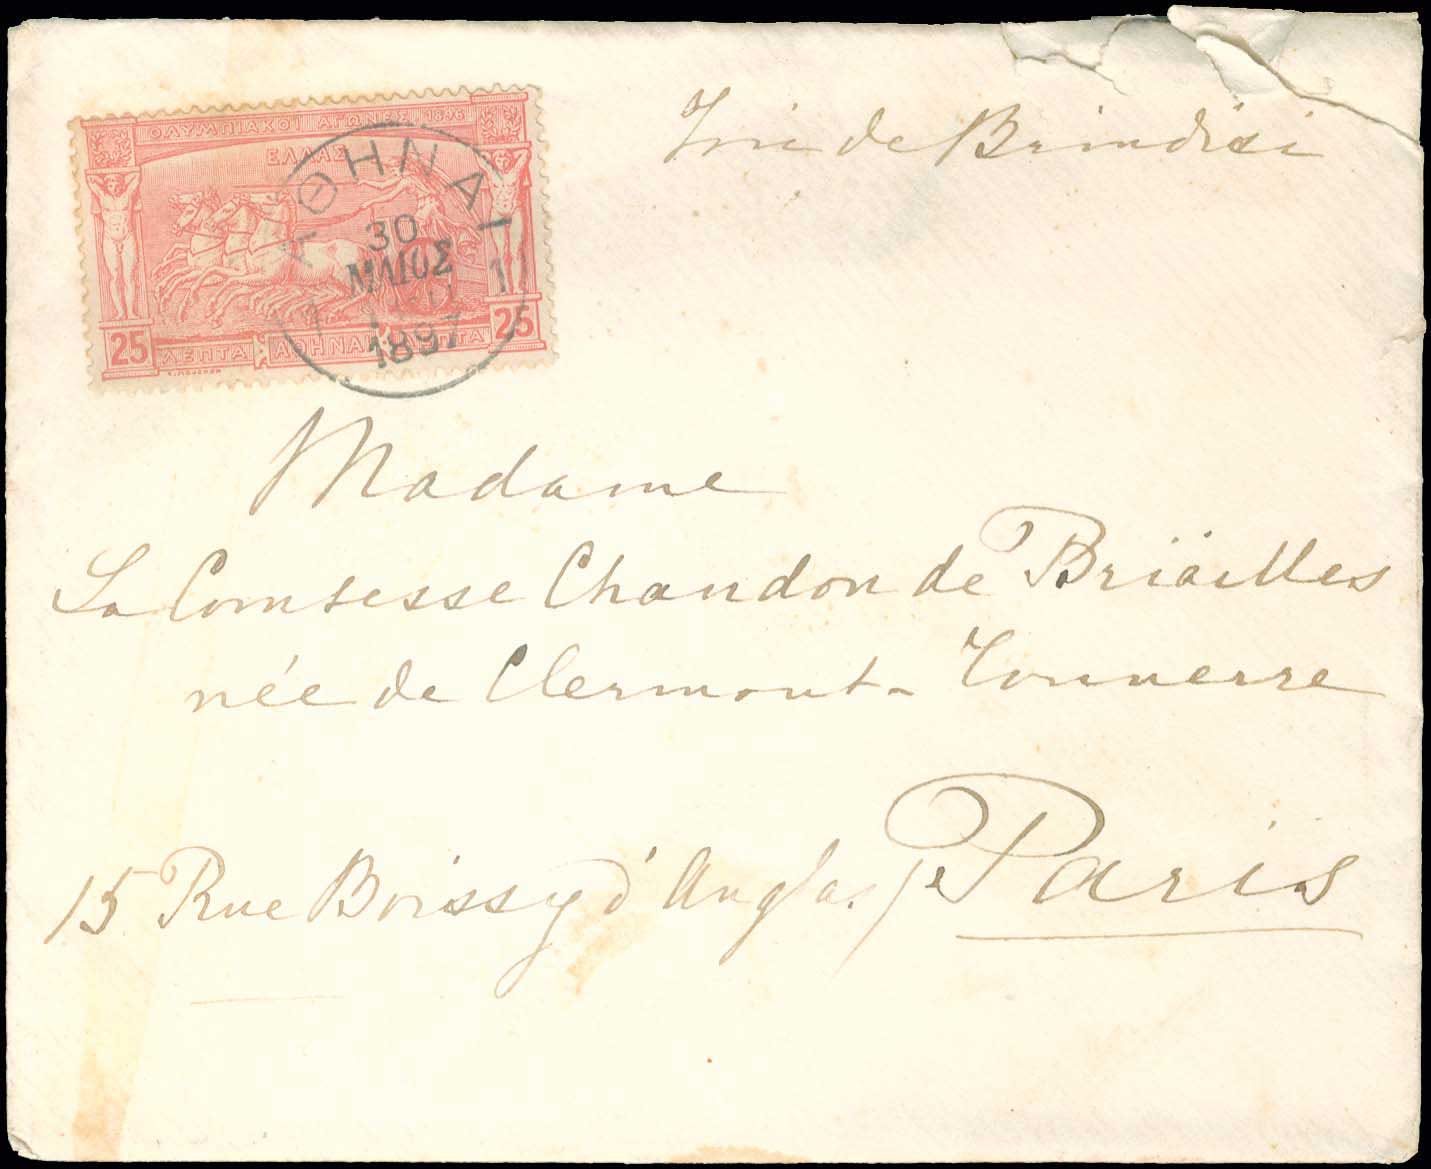 ΟΛΥΜΠΙΑΚΟΙ ΑΓΩΝΕΣ 1896
ΕΛΛΑΣ
ΑΘΗΝΑΙ
30
ΜΑΙΟΣ
1897
25 ΛΕΠΤΑ ΑΘΗΝΑΙ ΛΕΠΤΑ 25
de Brindisi
Madame
La Comtesse Chandon de Briailles
née de Clermont-Tonnerre
15 Rue Boissy d'Anglas
Paris